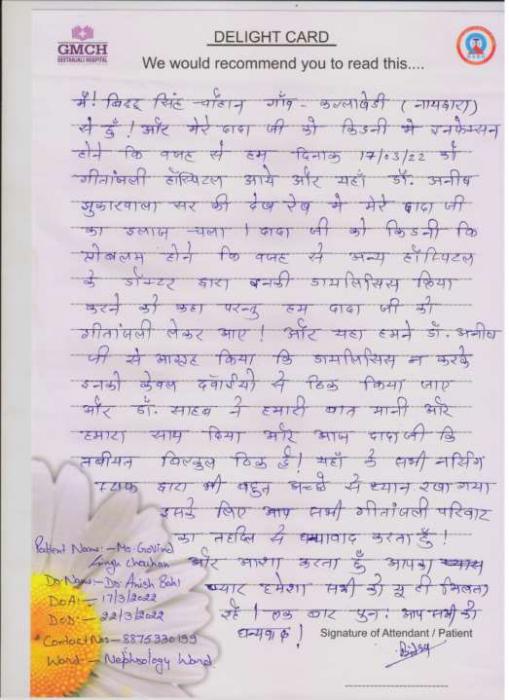 GMCH
GEETANJALI HOSPITAL
DELIGHT CARD
We would recommend you to read this....
मैं! विरद सिंह चौहान गाँव - कल्लाखेडी (नायद्वारा)
से हुँ! और मेरे दादा जी को किडनी मे इनफेक्सन
होने कि वजह से हम दिनाक 17/03/22 को
गीतांजली हॉस्पिटल आये और यहाँ डॉ. अनीष
झुकारवाला सर की देख रेख मे मेरे दादा जी
का इलाज चला । दादा जी को किडनी कि
प्रोबलम होने कि वजह से अन्य हॉस्पिटल
के डॉक्टर द्वारा इनकी डायलिसिस किया
करने को कहा परन्तु हम दादा जी को
गीतांजली लेकर आए! और यहा हमने डॉ. अनीष
जी से आग्रह किया कि डायलिसिस न करके
इनको केवल दवाईयो से ठिक किया जाए
और डॉ. साहब ने हमारी बात मानी और
हमारा साथ दिया और आज दादा जी कि
तबीयत बिल्कुल ठिक है! यहाँ के सभी नर्सिंग
स्टाफ द्वारा भी बहुत अच्छे से ध्यान रखा गया
इसके लिए आप सभी गीतांजली परिवार
का तहदिल से धन्यावाद करता हुँ!
और आशा करता हुँ आपका
प्यार हमेशा सभी को यू ही मिलता
रहे । एक बार पुन: आप सभी को
धन्यवाद!
Patient Name:- Mr. Govind
Singh chauhan
Dr. Name:- Dr. Anish
DOA:- 17/3/2022
DOD:- 22/3/2022
*Contact No- 8875330199
Ward:- Nephrology Ward
Signature of Attendant / Patient